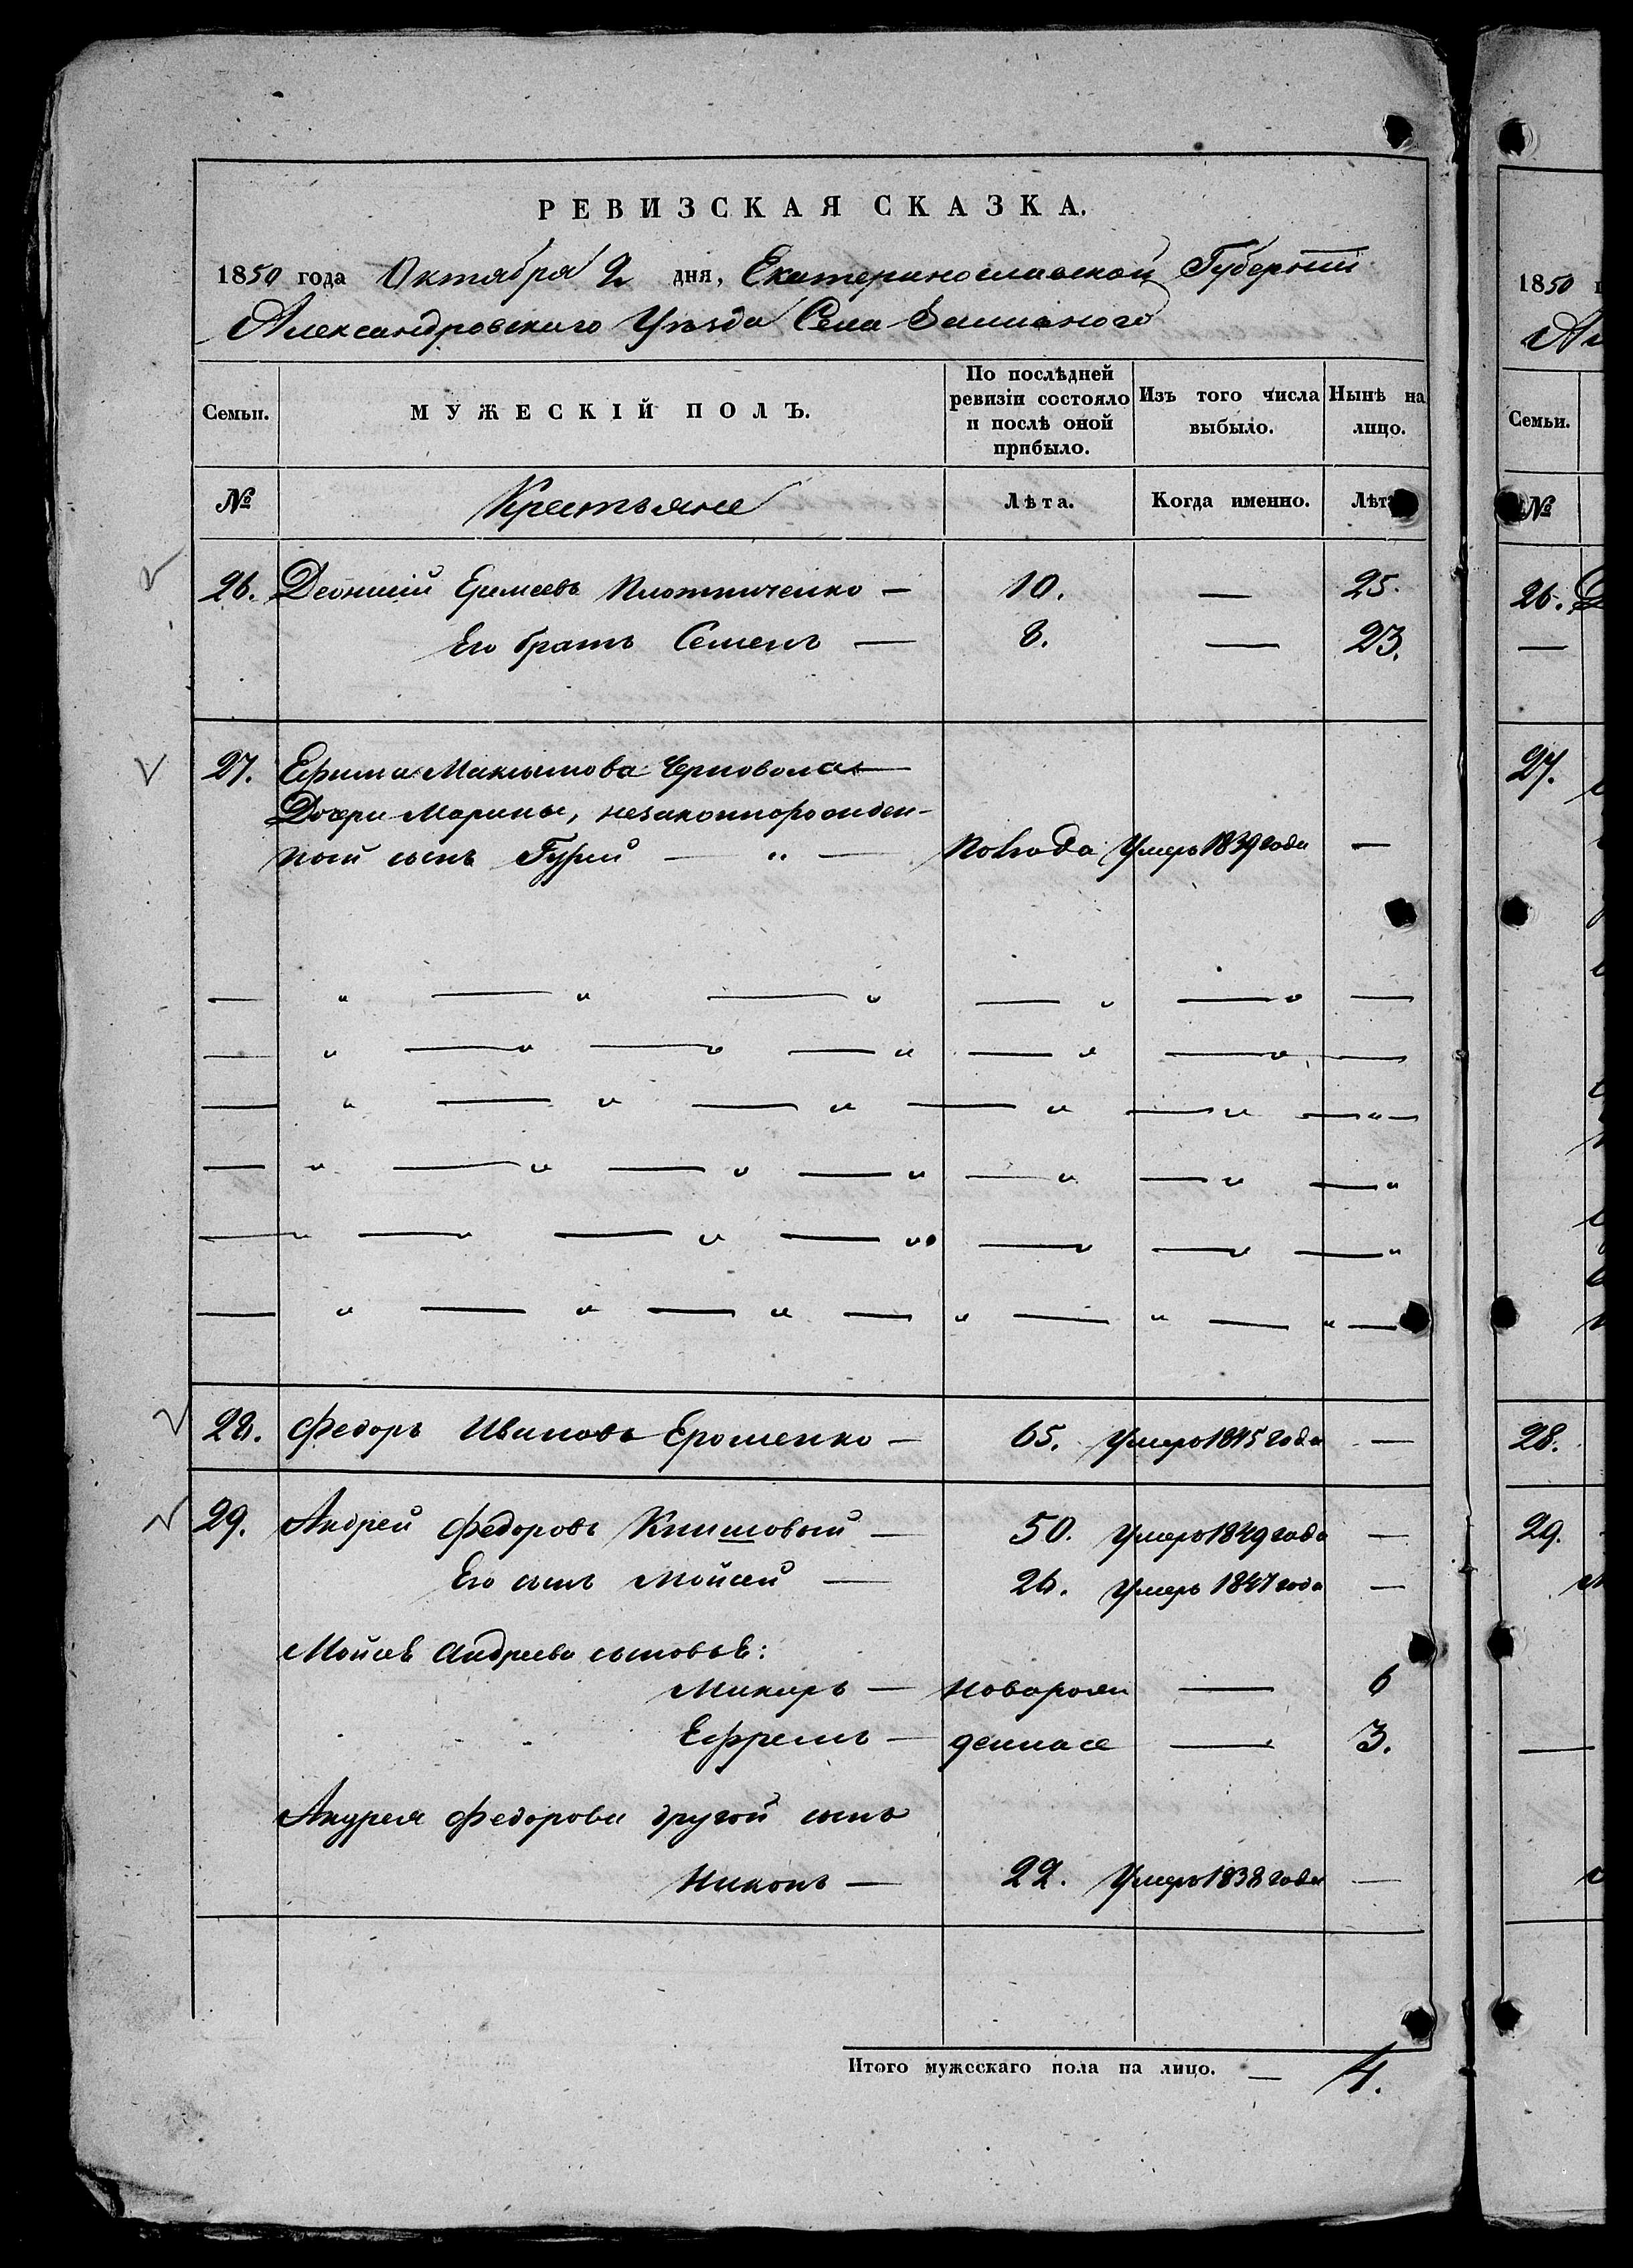 РЕВИЗСКАЯ СКАЗКА.
1850 года Октября 2 дня, Екатеринославской Губернии
Александровского Уѣзда Села
Семьи. МУЖЕСКІЙ ПОЛЪ. По послѣдней ревизіи состояло и послѣ оной прибыло. Изъ того числа выбыло. Нынѣ на лицо.
№ Крестьяне Лѣта. Когда именно. Лѣта
26. Деонисій Еремеевъ Плотниченко — 10. — 25.
Его братъ Семенъ — 8. — 23.
27. Ефима Максимова Черновола
Дочери Марины, незаконнорожден-
ной сынъ Гурій — " — Умеръ 1839 года —
28. Федоръ Ивановъ Ерошенко — 65. Умеръ 1845 года —
29. Андрей Федоровъ Книшовый — 50. Умеръ 1849 года —
Его сынъ Мойсей — 26. Умеръ 1847 года —
Мойсея Андреева сыновья:
Макаръ — новорож — 6
Ефремъ — денные — 3.
Андрея Федорова другой сынъ
Никонъ — 22. Умеръ 1838 года —
Итого мужескаго пола на лицо. — 4.
1850
Семьи.
№
26.
27.
28.
29.